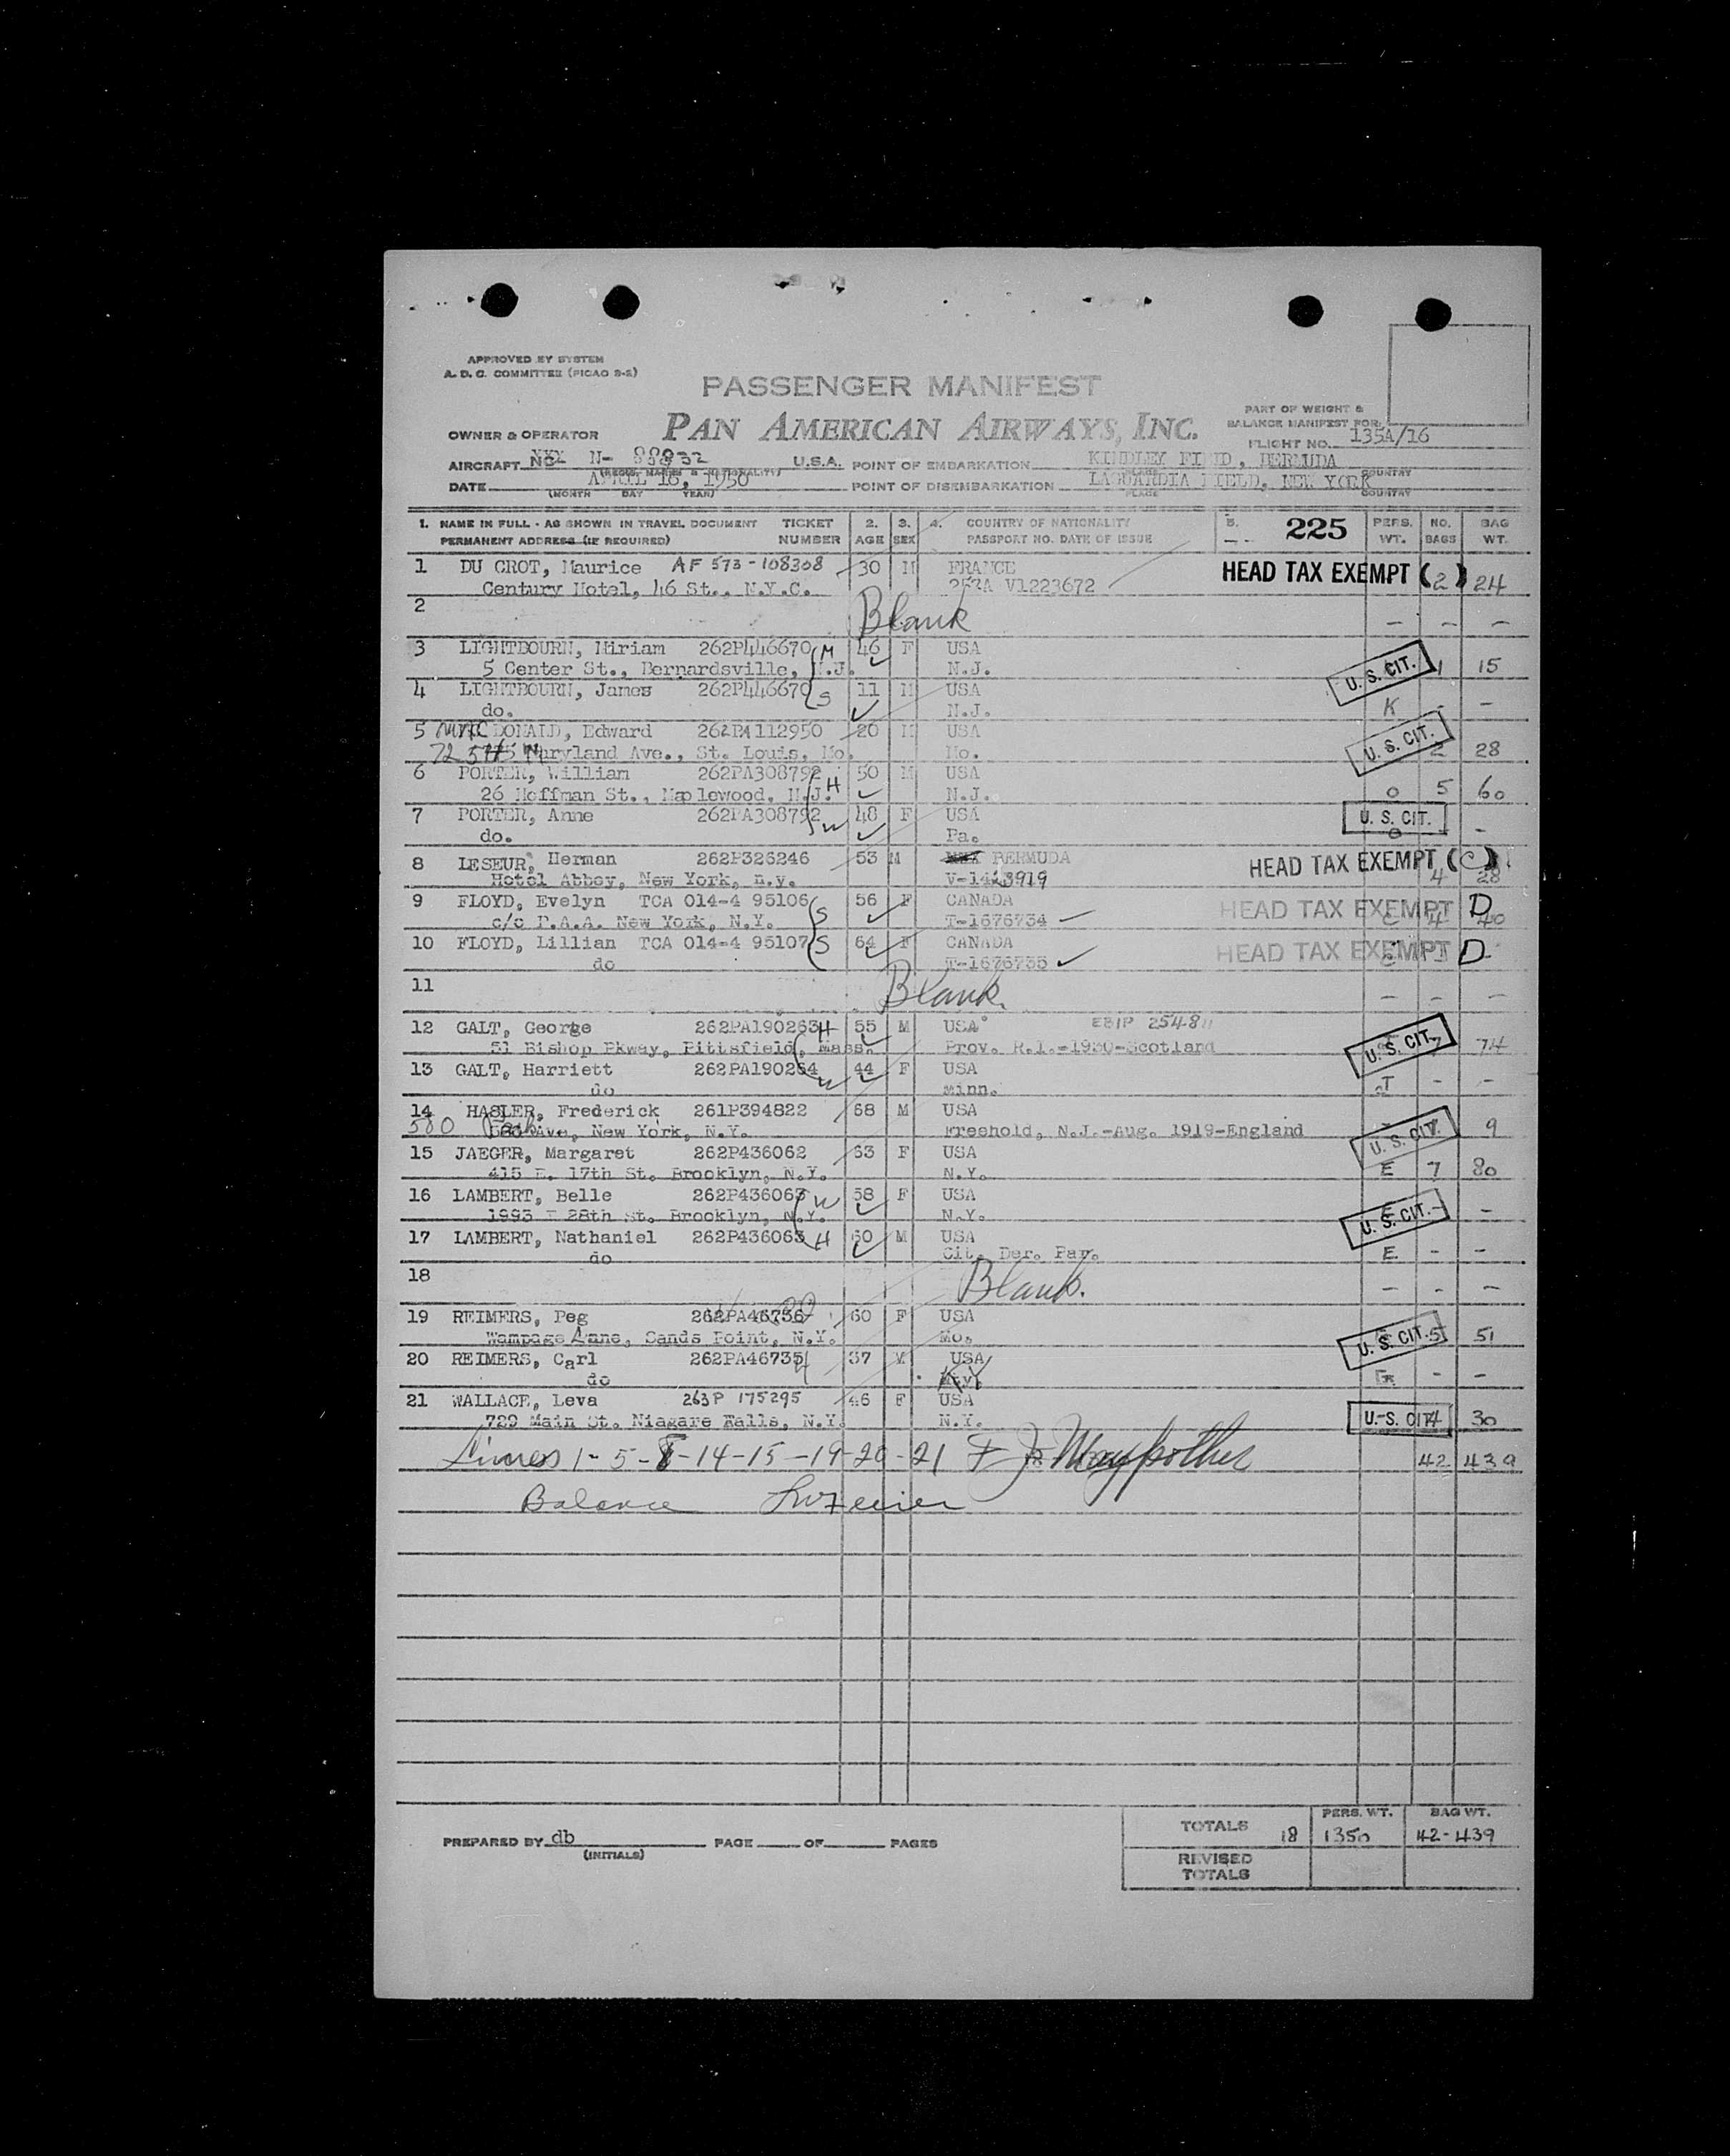 APPROVED BY SYSTEM
A. D. C. COMMITTEE (PICAO 2-2)
PASSENGER MANIFEST
PAN AMERICAN AIRWAYS, INC.
PART OF WEIGHT &
BALANCE MANIFEST FOR
OWNER & OPERATOR
FLIGHT NO. 135A/16
AIRCRAFT NC XXX N- U.S.A. POINT OF EMBARKATION KINDLEY FIELD, BERMUDA
(REGIS. MARKS & NATIONALITY) PLACE COUNTRY
DATE APRIL 16, 1950 POINT OF DISEMBARKATION LAGUARDIA FIELD, NEW YORK
(MONTH DAY YEAR) PLACE COUNTRY
1. NAME IN FULL - AS SHOWN IN TRAVEL DOCUMENT TICKET 2. 3. 4. COUNTRY OF NATIONALITY 5. 225 PERS. NO. BAG
PERMANENT ADDRESS (IF REQUIRED) NUMBER AGE SEX PASSPORT NO. DATE OF ISSUE WT. BAGS WT.
1 DU CROT, Maurice AF 573-108308 30 M FRANCE HEAD TAX EXEMPT (2) 24
Century Hotel, 46 St., N.Y.C. V1223672
2 Blank — — —
3 LIGHTBOURN, Miriam 262P446670 M 46 F USA
5 Center St., Bernardsville, N.J. N.J. U. S. CIT. 1 15
4 LIGHTBOURN, James 262P446670 S 11 M USA
do. N.J. K - -
5 MAC DONALD, Edward 262PA112950 20 M USA
Maryland Ave., St. Louis, Mo. Mo. U. S. CIT. 2 28
6 PORTER, William 262PA308792 50 M USA
26 Hoffman St., Maplewood, N.J. H N.J. O 5 60
7 PORTER, Anne 262PA308792 W 48 F USA U. S. CIT.
do. Pa. O - -
8 LESEUR, Herman 262P326246 53 M BERMUDA HEAD TAX EXEMPT (C)
Hotel Abbey, New York, n.y. V-1423919 4 28
9 FLOYD, Evelyn TCA 014-4 95106 S 56 F CANADA HEAD TAX EXEMPT D
c/o P.A.A. New York, N.Y. T-1676734 4 40
10 FLOYD, Lillian TCA 014-4 95107 S 64 F CANADA HEAD TAX EXEMPT D
do T-1676735
11 Blank. — — —
12 GALT, George 262PA190263 H 55 M USA
51 Bishop Pkway, Pittsfield, Mass. Prov. R.I.-1930-Scotland U. S. CIT. 7 74
13 GALT, Harriett 262PA190264 W 44 F USA
do Minn. T - -
14 HASLER, Frederick 261P394822 68 M USA
580 Park Ave, New York, N.Y. Freehold, N.J.-Aug. 1919-England U. S. CIT. 9
15 JAEGER, Margaret 262P436062 63 F USA
415 E. 17th St. Brooklyn, N.Y. N.Y. E 7 80
16 LAMBERT, Belle 262P436063 W 58 F USA
1993 E 28th St. Brooklyn, N.Y. N.Y. U. S. CIT. - -
17 LAMBERT, Nathaniel 262P436063 H 60 M USA
do Cit. Der. Par. E - -
18 Blank. — — —
19 REIMERS, Peg 262PA46736 60 F USA
Wampage Lane, Sands Point, N.Y. Mo. U. S. CIT. 5 51
20 REIMERS, Carl 262PA46735 37 M USA
do KY - -
21 WALLACE, Leva 263P 175295 46 F USA
729 Main St. Niagare Falls, N.Y. N.Y. U. S. CIT. 4 30
1-5-8-14-15-19-20-21 42 439
Balance
PREPARED BY db PAGE OF PAGES
(INITIALS)
PERS. WT. BAG WT.
TOTALS 18 1350 42-439
REVISED
TOTALS